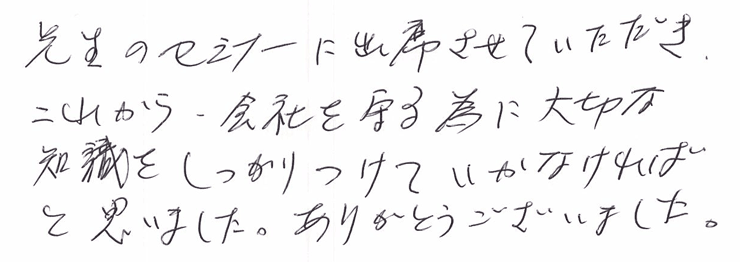 先生のセミナーに出席させていただき、
これから、会社を守る為に大切な
知識をしっかりつけていかなければ
と思いました。ありがとうございました。